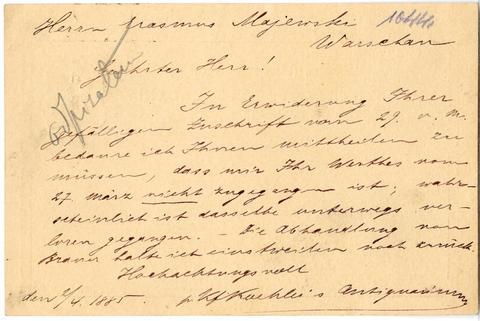 Herrn Erasmus Majewski
Warschau
Geehrter Herr!
In Erwiderung Ihrer
gefälligen Zuschrift vom 29. v. M.
bedaure ich Ihnen mittheilen zu
müssen, dass mir Ihr Werthes vom
27. März nicht zugegangen ist; wahr-
scheinlich ist dasselbe unterwegs ver-
loren gegangen. – Die Abhandlung von
Brauer halte ich einstweilen noch zurück.
Hochachtungsvoll
den 2/4. 1885. p. K. F. Koehler's Antiquarium